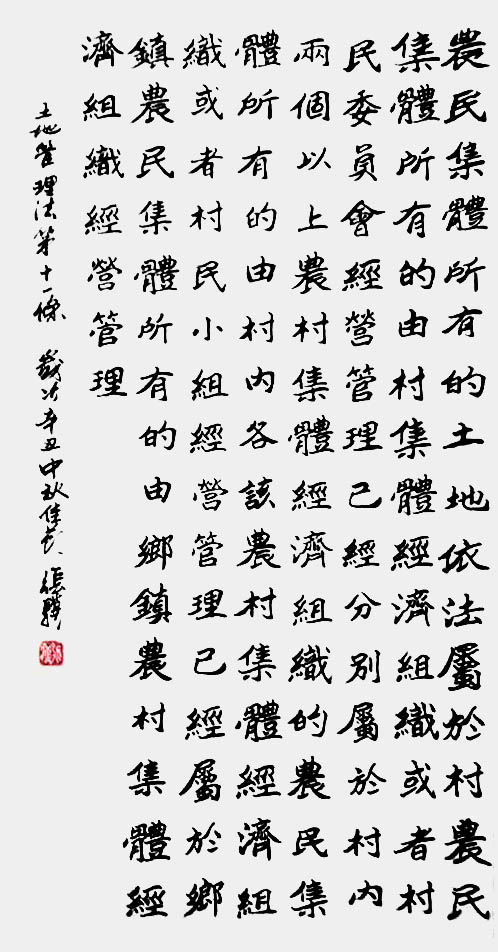 農民集體所有的土地依法屬於村農民
集體所有的由村集體經濟組織或者村
民委員會經營管理已經分別屬於村内
兩個以上農村集體經濟組織的農民集
體所有的由村内各該農村集體經濟組
織或者村民小組經營管理已經屬於鄉
鎮農民集體所有的由鄉鎮農村集體經
濟組織經營管理
土地管理法第十一條 歲次辛丑中秋佳节 張